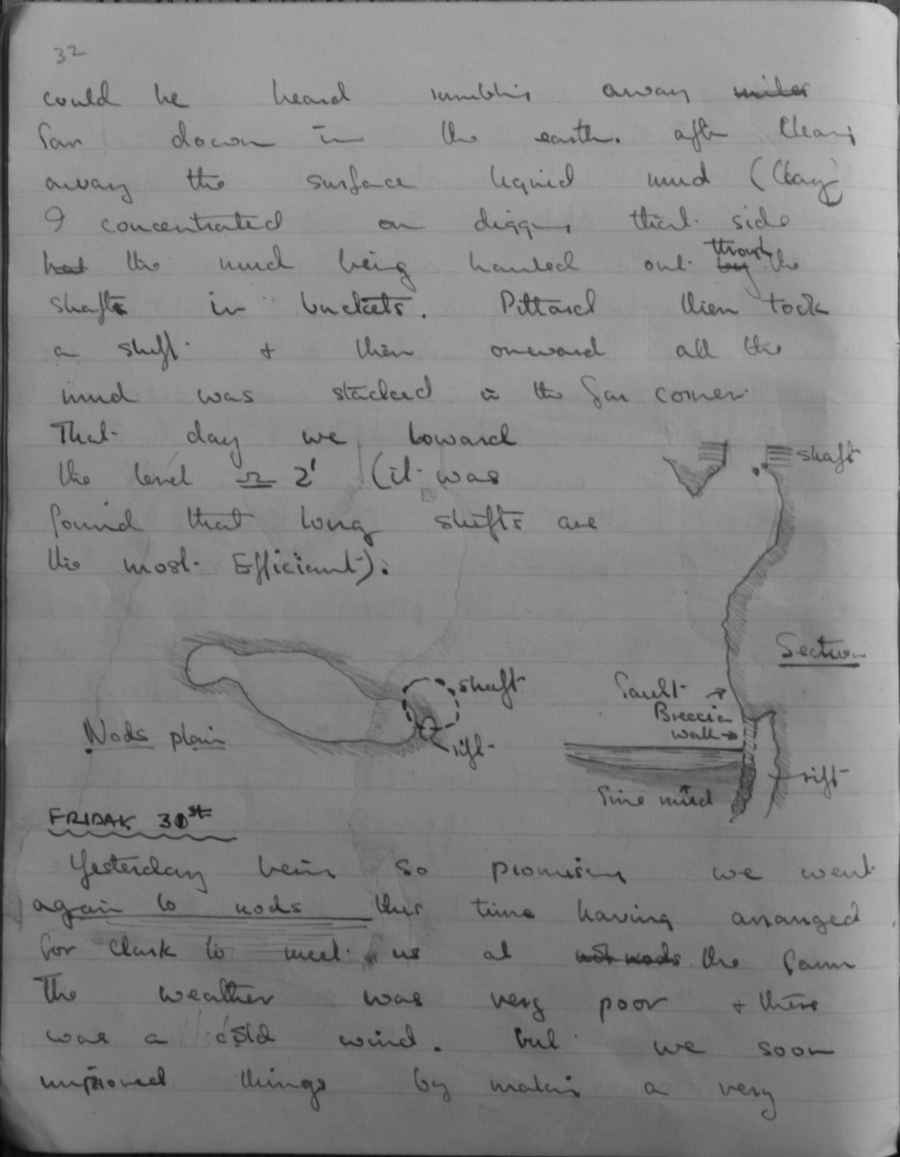 32
could be heard rumbling away miles
far down in the earth. after clearing
away the surface liquid mud (Clay)
I concentrated on digging that side
the mud being hauled out by through the
shaft in buckets. Pittard then took
a shift & then onward all the
mud was stacked in the far corner
That day we lowered
the level 2' (it was
found that long shifts are
the most Efficient).
shaft
Section
fault
Breccia
wall
rift
fine mud
shaft
rift
Nods plain
FRIDAY 30st
Yesterday being so promising we went
again to nods this time having arranged
for Clark to meet us at not nods the farm
The weather was very poor & there
was a cold wind. but we soon
improved things by making a very